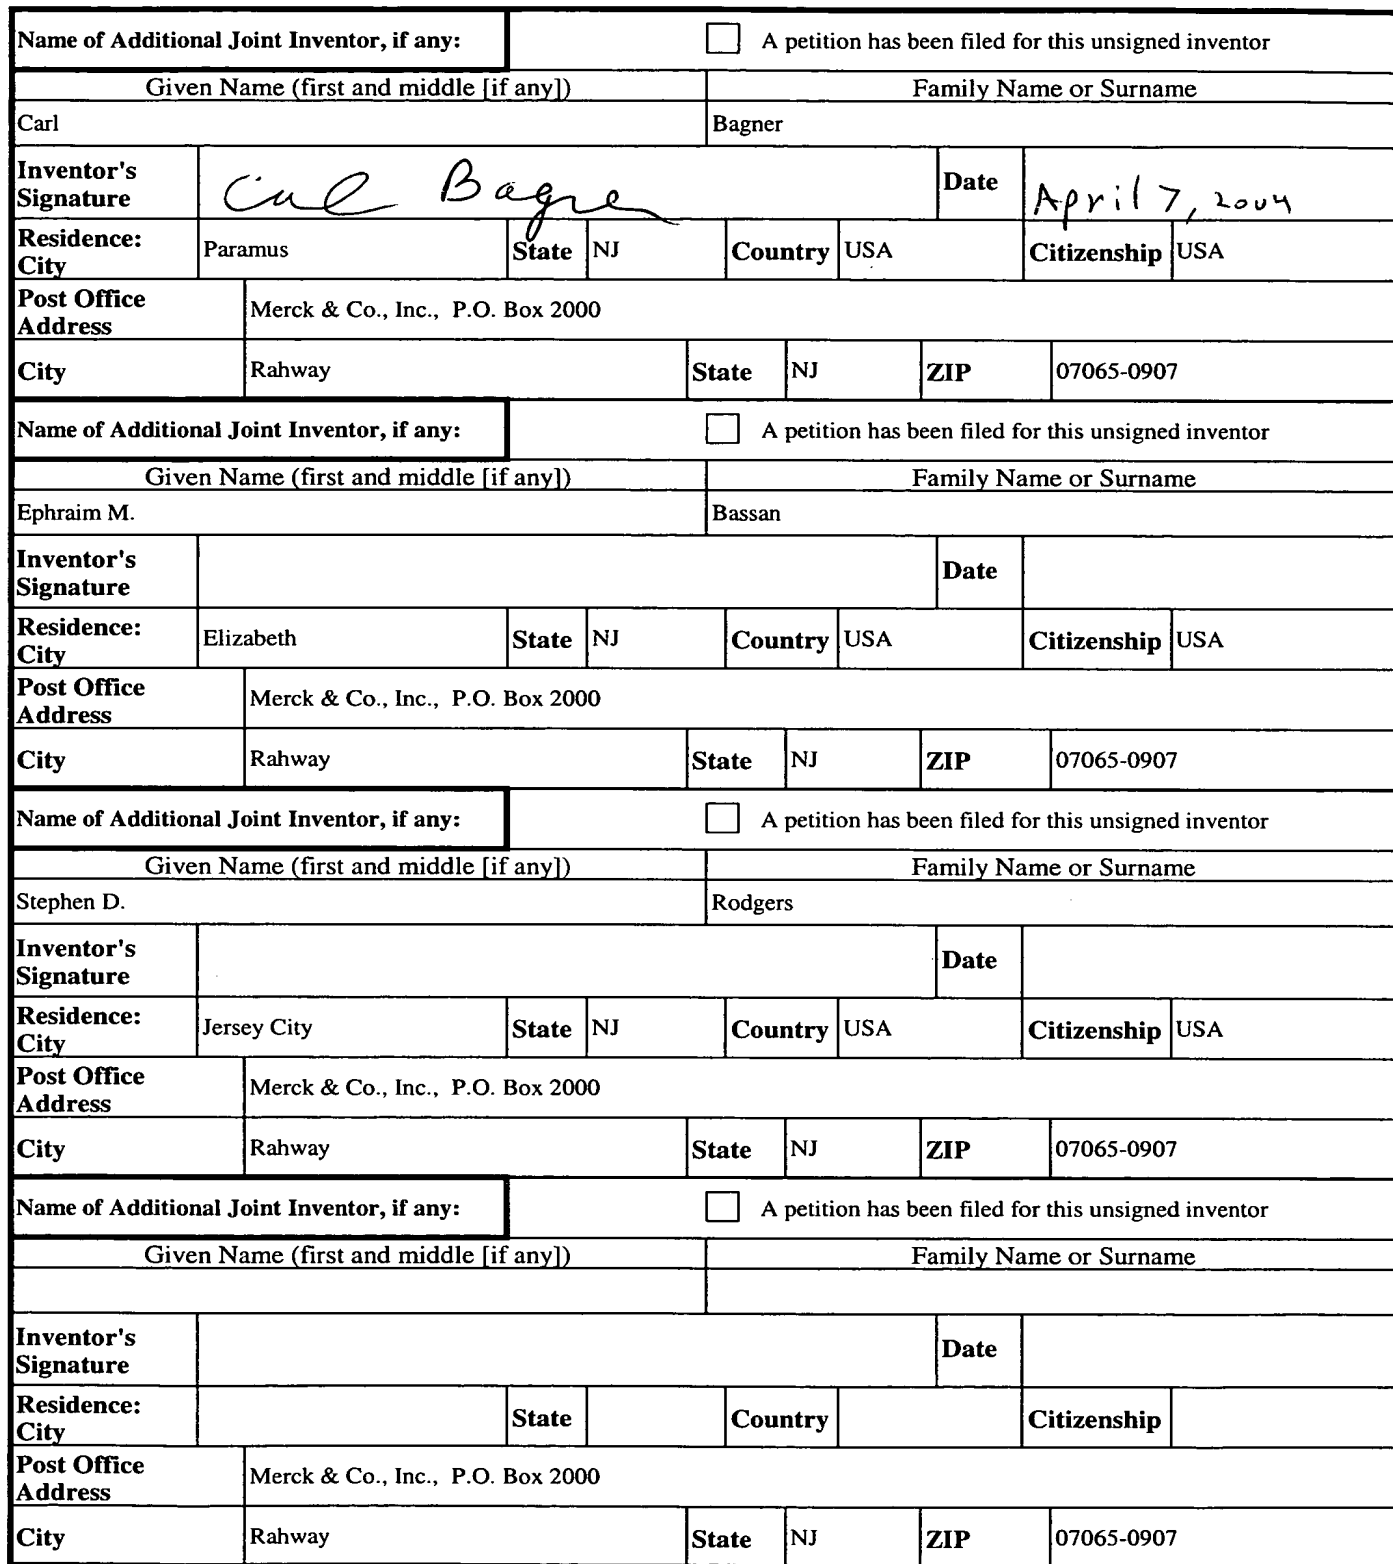 Name of Additional Joint Inventor, if any: A petition has been filed for this unsigned inventor
Given Name (first and middle [if any]) Family Name or Surname
Carl Bagner
Inventor's Signature Carl Bagner Date April 7, 2004
Residence: City Paramus State NJ Country USA Citizenship USA
Post Office Address Merck & Co., Inc., P.O. Box 2000
City Rahway State NJ ZIP 07065-0907
Name of Additional Joint Inventor, if any: A petition has been filed for this unsigned inventor
Given Name (first and middle [if any]) Family Name or Surname
Ephraim M. Bassan
Inventor's Signature Date
Residence: City Elizabeth State NJ Country USA Citizenship USA
Post Office Address Merck & Co., Inc., P.O. Box 2000
City Rahway State NJ ZIP 07065-0907
Name of Additional Joint Inventor, if any: A petition has been filed for this unsigned inventor
Given Name (first and middle [if any]) Family Name or Surname
Stephen D. Rodgers
Inventor's Signature Date
Residence: City Jersey City State NJ Country USA Citizenship USA
Post Office Address Merck & Co., Inc., P.O. Box 2000
City Rahway State NJ ZIP 07065-0907
Name of Additional Joint Inventor, if any: A petition has been filed for this unsigned inventor
Given Name (first and middle [if any]) Family Name or Surname
Inventor's Signature Date
Residence: City State Country Citizenship
Post Office Address Merck & Co., Inc., P.O. Box 2000
City Rahway State NJ ZIP 07065-0907